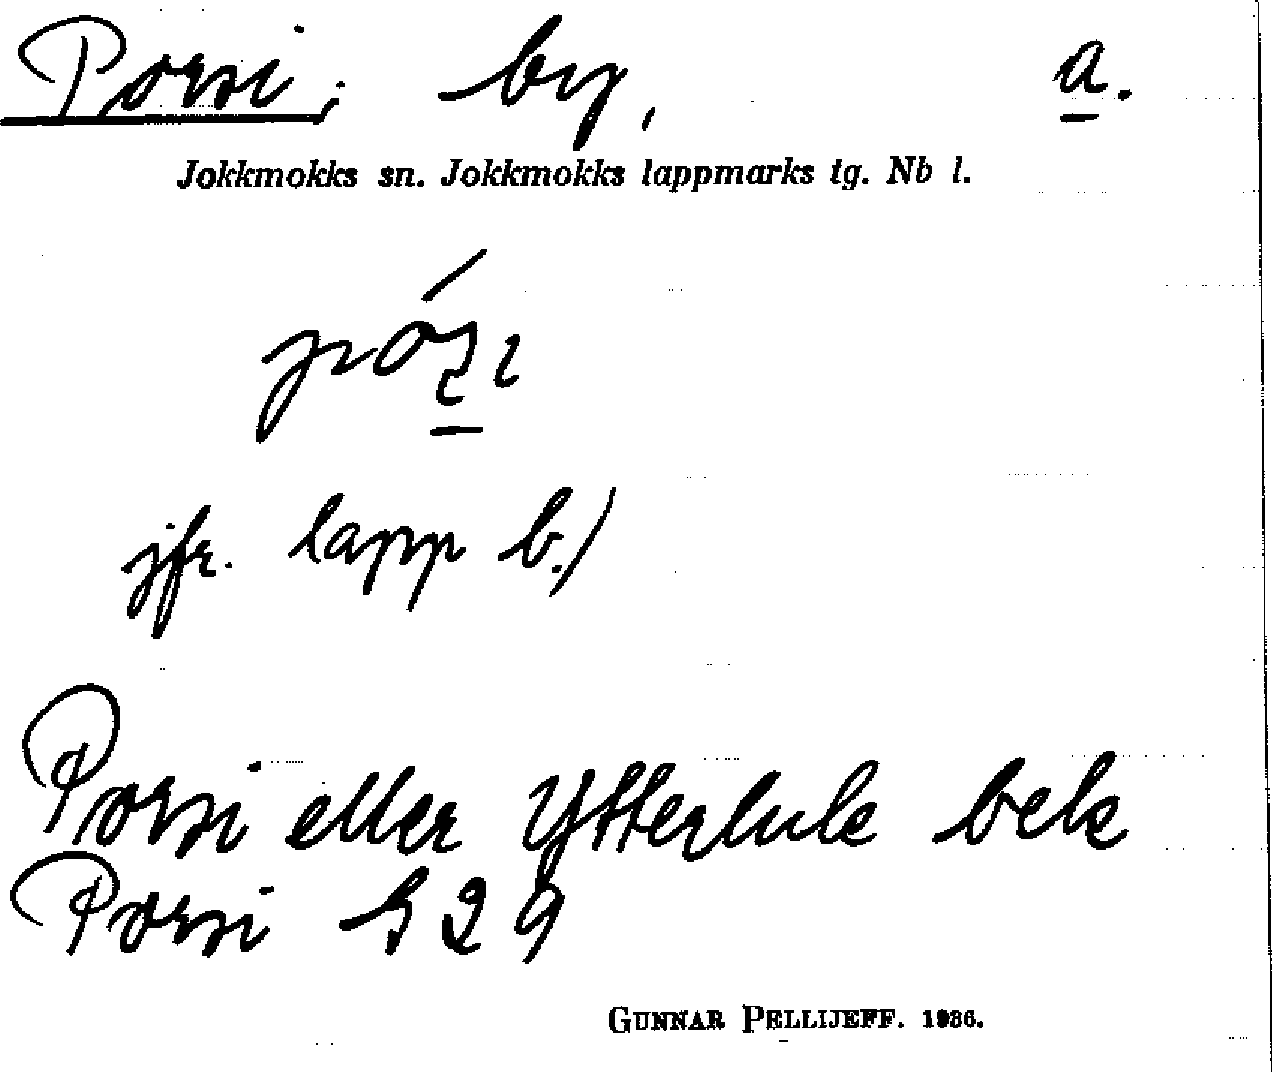 Porsi, by, a.
Jokkmokks sn. Jokkmokks lappmarks tg. Nb l.
jfr. lapp b.)
Porsi eller Ytterlule bek
Porsi S 2 9
GUNNAR PELLIJEFF. 1936.